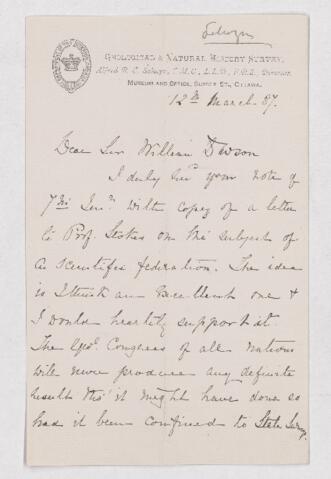 Selwyn
GEOLOGICAL & NATURAL HISTORY SURVEY,
Alfred R. C. Selwyn, C.M.G., L.L.D., F.R.S., Director.
MUSEUM AND OFFICE, SUSSEX ST., OTTAWA.
12th March 87.
Dear Sir William Dawson
I duly recd your note of
7th Inst. with copy of a letter
to Prof. Stokes on the subject of
a scientific federation. The idea
is I think an excellent one &
I would heartily support it.
The Geol. Congress of all Nations
will never produce any definite
result tho' it might have done so
had it been confined to State Surveys